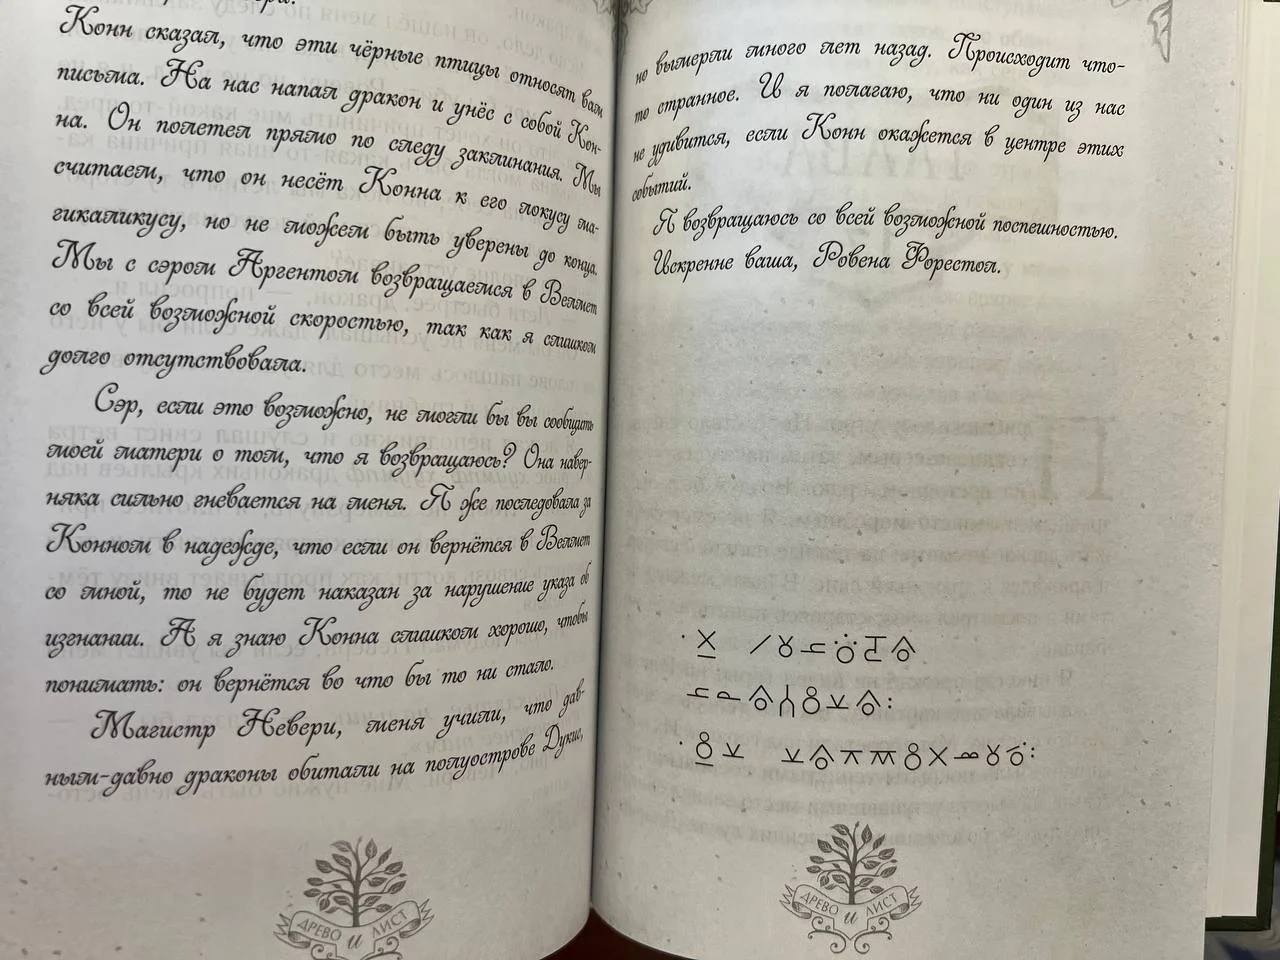 Конн сказал, что эти чёрные птицы относят вам
письма. На нас напал дракон и унёс с собой Кон-
на. Он полетел прямо по следу заклинания. Мы
считаем, что он несёт Конна к его локусу ма-
гикаликусу, но не можем быть уверены до конца.
Мы с сэром Аргентом возвращаемся в Велмет
со всей возможной скоростью, так как я слишком
долго отсутствовала.
Сэр, если это возможно, не могли бы вы сообщить
моей матери о том, что я возвращаюсь? Она навер-
няка сильно гневается на меня. Я же последовала за
Конном в надежде, что если он вернётся в Велмет
со мной, то не будет наказан за нарушение указа об
изгнании. А я знаю Конна слишком хорошо, чтобы
понимать: он вернётся во что бы то ни стало.
Магистр Невери, меня учили, что дав-
ным-давно драконы обитали на полуострове Дукис,
ДРЕВО и ЛИСТ
но вымерли много лет назад. Происходит что-
то странное. И я полагаю, что ни один из нас
не удивится, если Конн окажется в центре этих
событий.
Я возвращаюсь со всей возможной поспешностью.
Искренне ваша, Ровена Форестол.
ДРЕВО и ЛИСТ